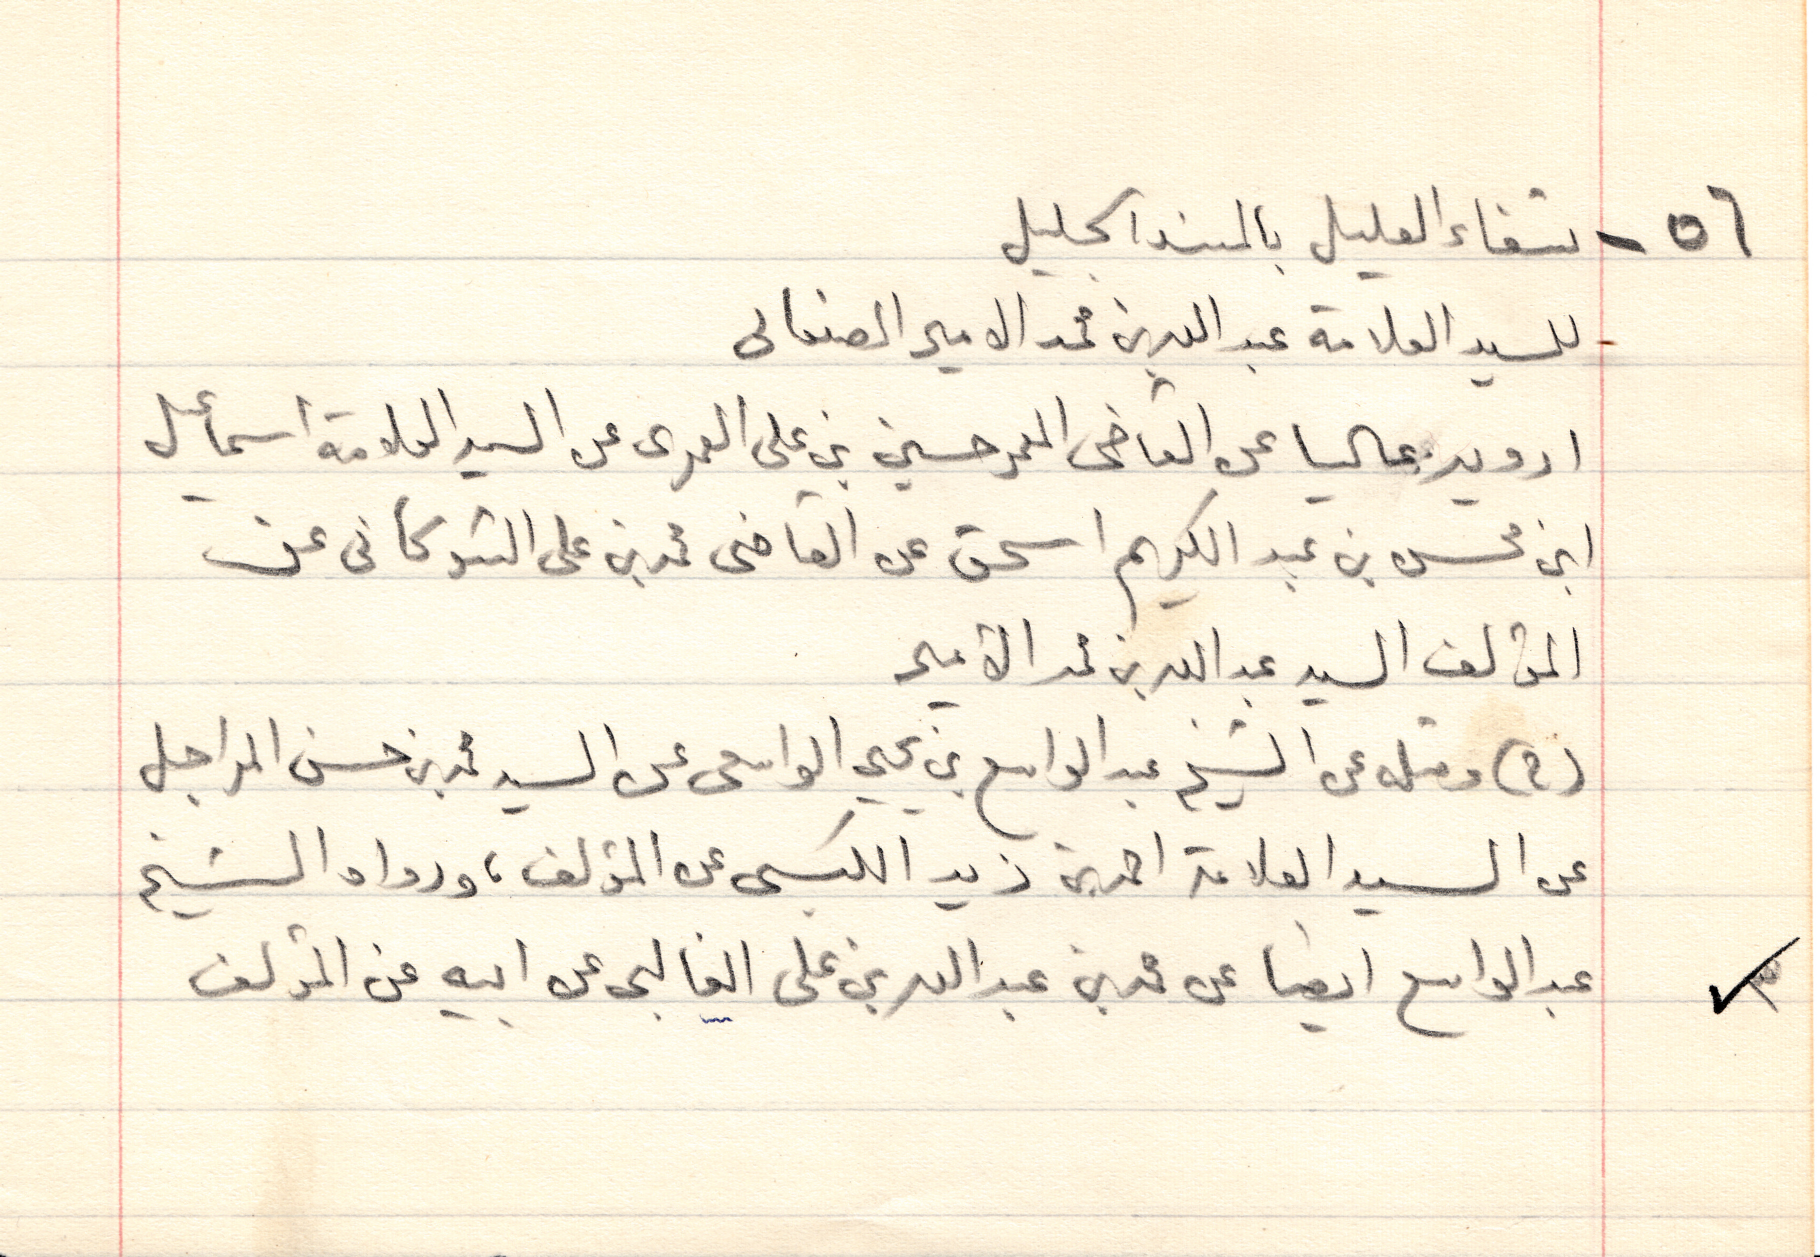 ٥٦ - شفاء العليل بالسند الجليل
للسيد العلامة عبد الله بن محمد الامير الصنعانى
ارويه عاليا عن القاضى المعمر حسين بن على العمرى عن السيد العلامة اسماعيل
ابن محسن بن عبد الكريم اسحق عن القاضى محمد بن على الشوكانى عن
المؤلف السيد عبد الله بن محمد الأمير
(ح) ومثله عن الشيخ عبد الواسع بن يحيى الواسعى عن السيد محمد بن حسن المراجل
عن السيد العلامة احمد بن زيد الكبسى عن المؤلف، ورواه الشيخ
عبد الواسع ايضا عن محمد بن عبد الله بن على الغالبى عن ابيه عن المؤلف